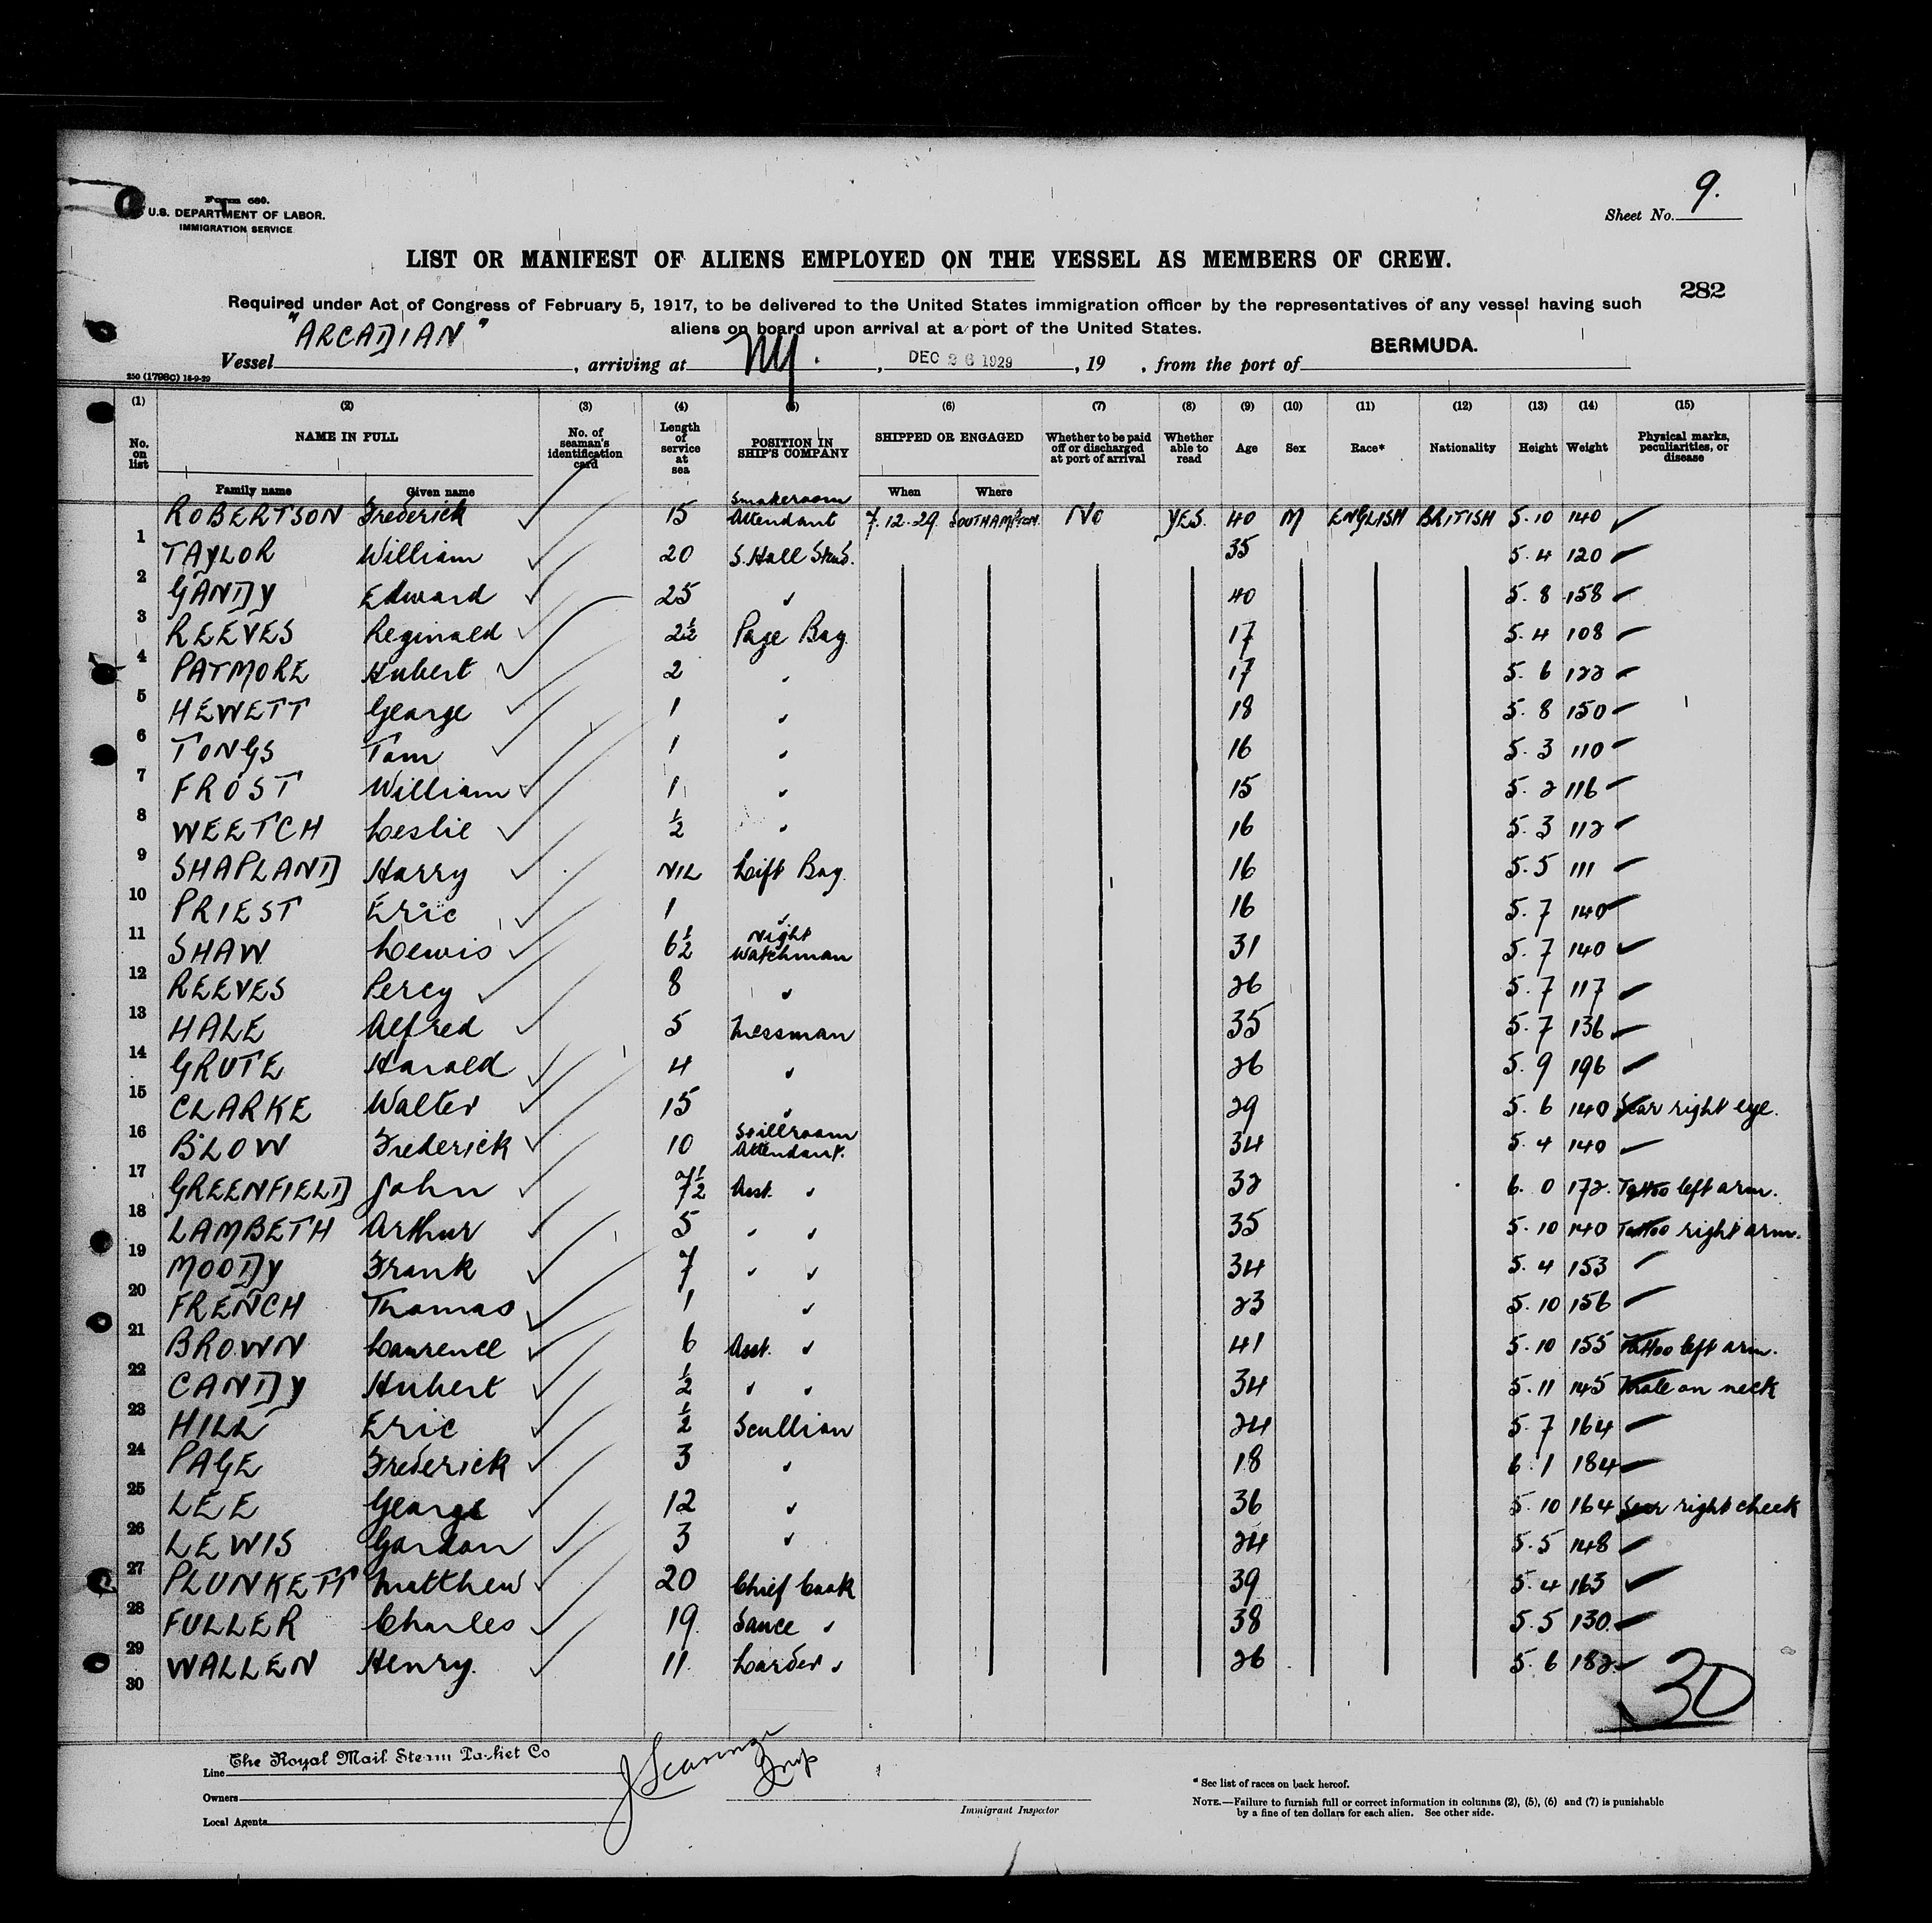 Form 680.
U.S. DEPARTMENT OF LABOR.
IMMIGRATION SERVICE
Sheet No. 9.
LIST OR MANIFEST OF ALIENS EMPLOYED ON THE VESSEL AS MEMBERS OF CREW.
282
Required under Act of Congress of February 5, 1917, to be delivered to the United States immigration officer by the representatives of any vessel having such
aliens on board upon arrival at a port of the United States.
Vessel "ARCADIAN", arriving at NY., DEC 26 1929, 19 , from the port of BERMUDA.
250 (1798C) 18-9-29
(1) (2) (3) (4) (5) (6) (7) (8) (9) (10) (11) (12) (13) (14) (15)
No. on list NAME IN FULL No. of seaman's identification card Length of service at sea POSITION IN SHIP'S COMPANY SHIPPED OR ENGAGED Whether to be paid off or discharged at port of arrival Whether able to read Age Sex Race* Nationality Height Weight Physical marks, peculiarities, or disease
Family name Given name When Where
1 ROBERTSON Frederick 15 Smokeroom Attendant 7.12.29. SOUTHAMPTON. NO YES. 40 M ENGLISH BRITISH 5.10 140
2 TAYLOR William 20 S. Hall Stwd. 35 5.4 120
3 GANDY Edward 25 " 40 5.8 158
4 REEVES Reginald 2½ Page Boy. 17 5.4 108
5 PATMORE Hubert 2 " 17 5.6 122
6 HEWETT George 1 " 18 5.8 150
7 TONGS Tom 1 " 16 5.3 110
8 FROST William 1 " 15 5.2 116
9 WEETCH Leslie ½ " 16 5.3 112
10 SHAPLAND Harry NIL Lift Boy. 16 5.5 111
11 PRIEST Eric 1 " 16 5.7 140
12 SHAW Lewis 6½ Night Watchman 31 5.7 140
13 REEVES Percy 8 " 26 5.7 117
14 HALE Alfred 5 Messman 35 5.7 136
15 GRUTE Harold 4 " 26 5.9 196
16 CLARKE Walter 15 " 29 5.6 140 Scar right eye.
17 BLOW Frederick 10 Stillroom Attendant. 34 5.4 140
18 GREENFIELD John 7½ Asst. " 32 6.0 172. Tattoo left arm.
19 LAMBETH Arthur 5 " " 35 5.10 140 Tattoo right arm.
20 MOODY Frank 7 " " 34 5.4 153
21 FRENCH Thomas 1 " 23 5.10 156
22 BROWN Laurence 6 Asst. " 41 5.10 155 Tattoo left arm.
23 CANDY Hubert ½ " " 34 5.11 145 Mole on neck
24 HILL Eric ½ Scullion 24 5.7 164
25 PAGE Frederick 3 " 18 6.1 184
26 LEE George 12 " 36 5.10 164 Scar right cheek
27 LEWIS Gordon 3 " 24 5.5 148
28 PLUNKETT Matthew 20 Chief Cook 39 5.4 163
29 FULLER Charles 19. Sauce " 38 5.5 130.
30 WALLEN Henry. 11. Larder " 26 5.6 182.
30
Line The Royal Mail Steam Packet Co
Owners
Local Agents
Immigrant Inspector
* See list of races on back hereof.
NOTE.—Failure to furnish full or correct information in columns (2), (5), (6) and (7) is punishable
by a fine of ten dollars for each alien. See other side.